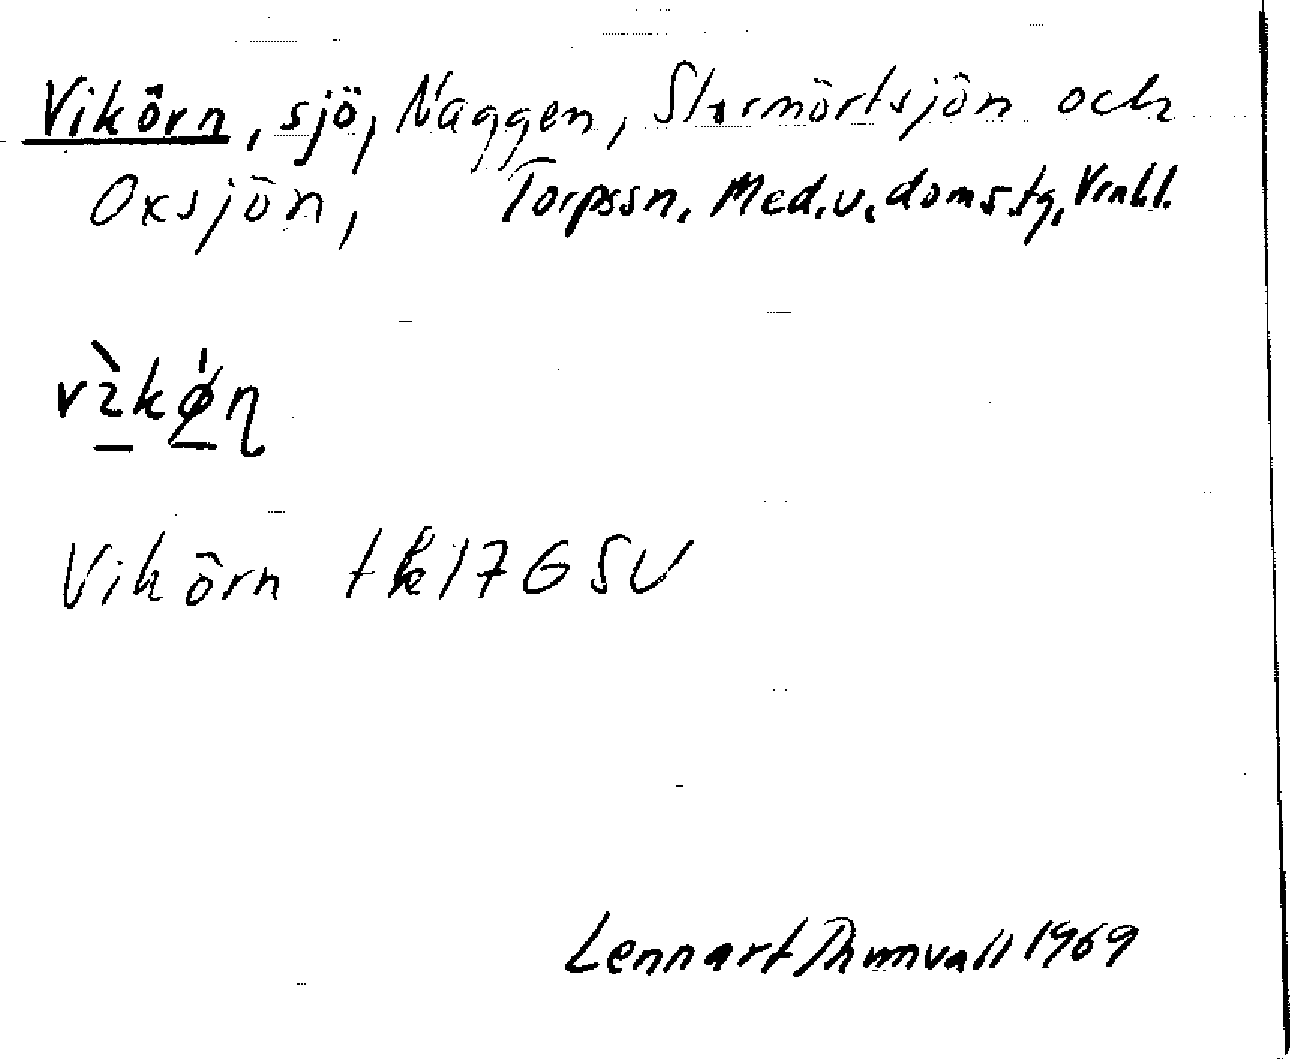 Vikörn, sjö, Naggen, Stormörtsjön och
Oxsjön, Torpssn, Med.v.domstg, Vrnll.
Vikörn tk 17G SV
Lennart Thunvall 1969